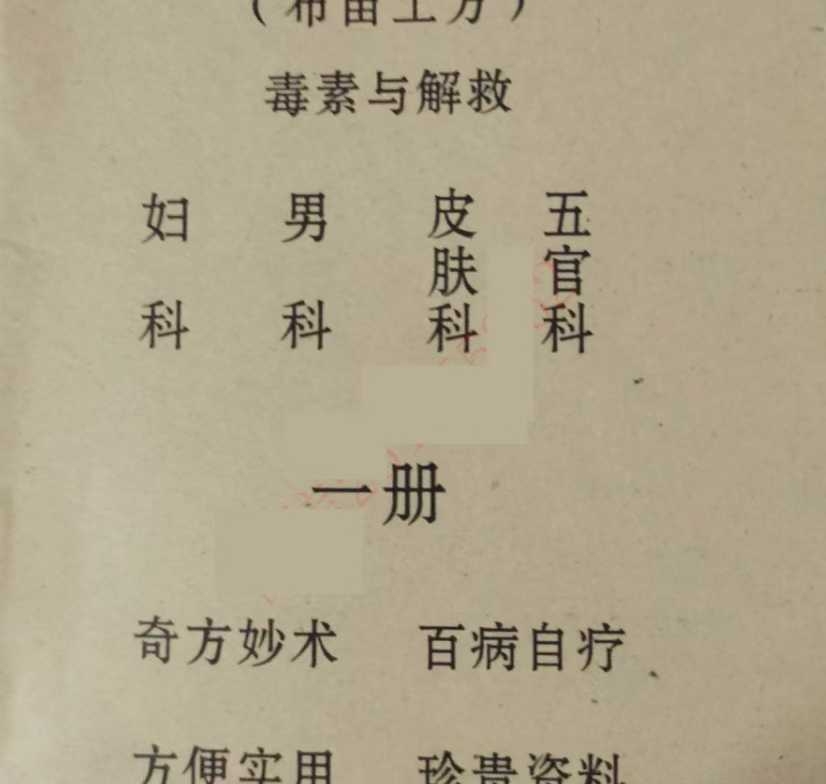 毒素与解救
妇科 男科 皮肤科 五官科
一册
奇方妙术 百病自疗
方便实用 珍贵资料